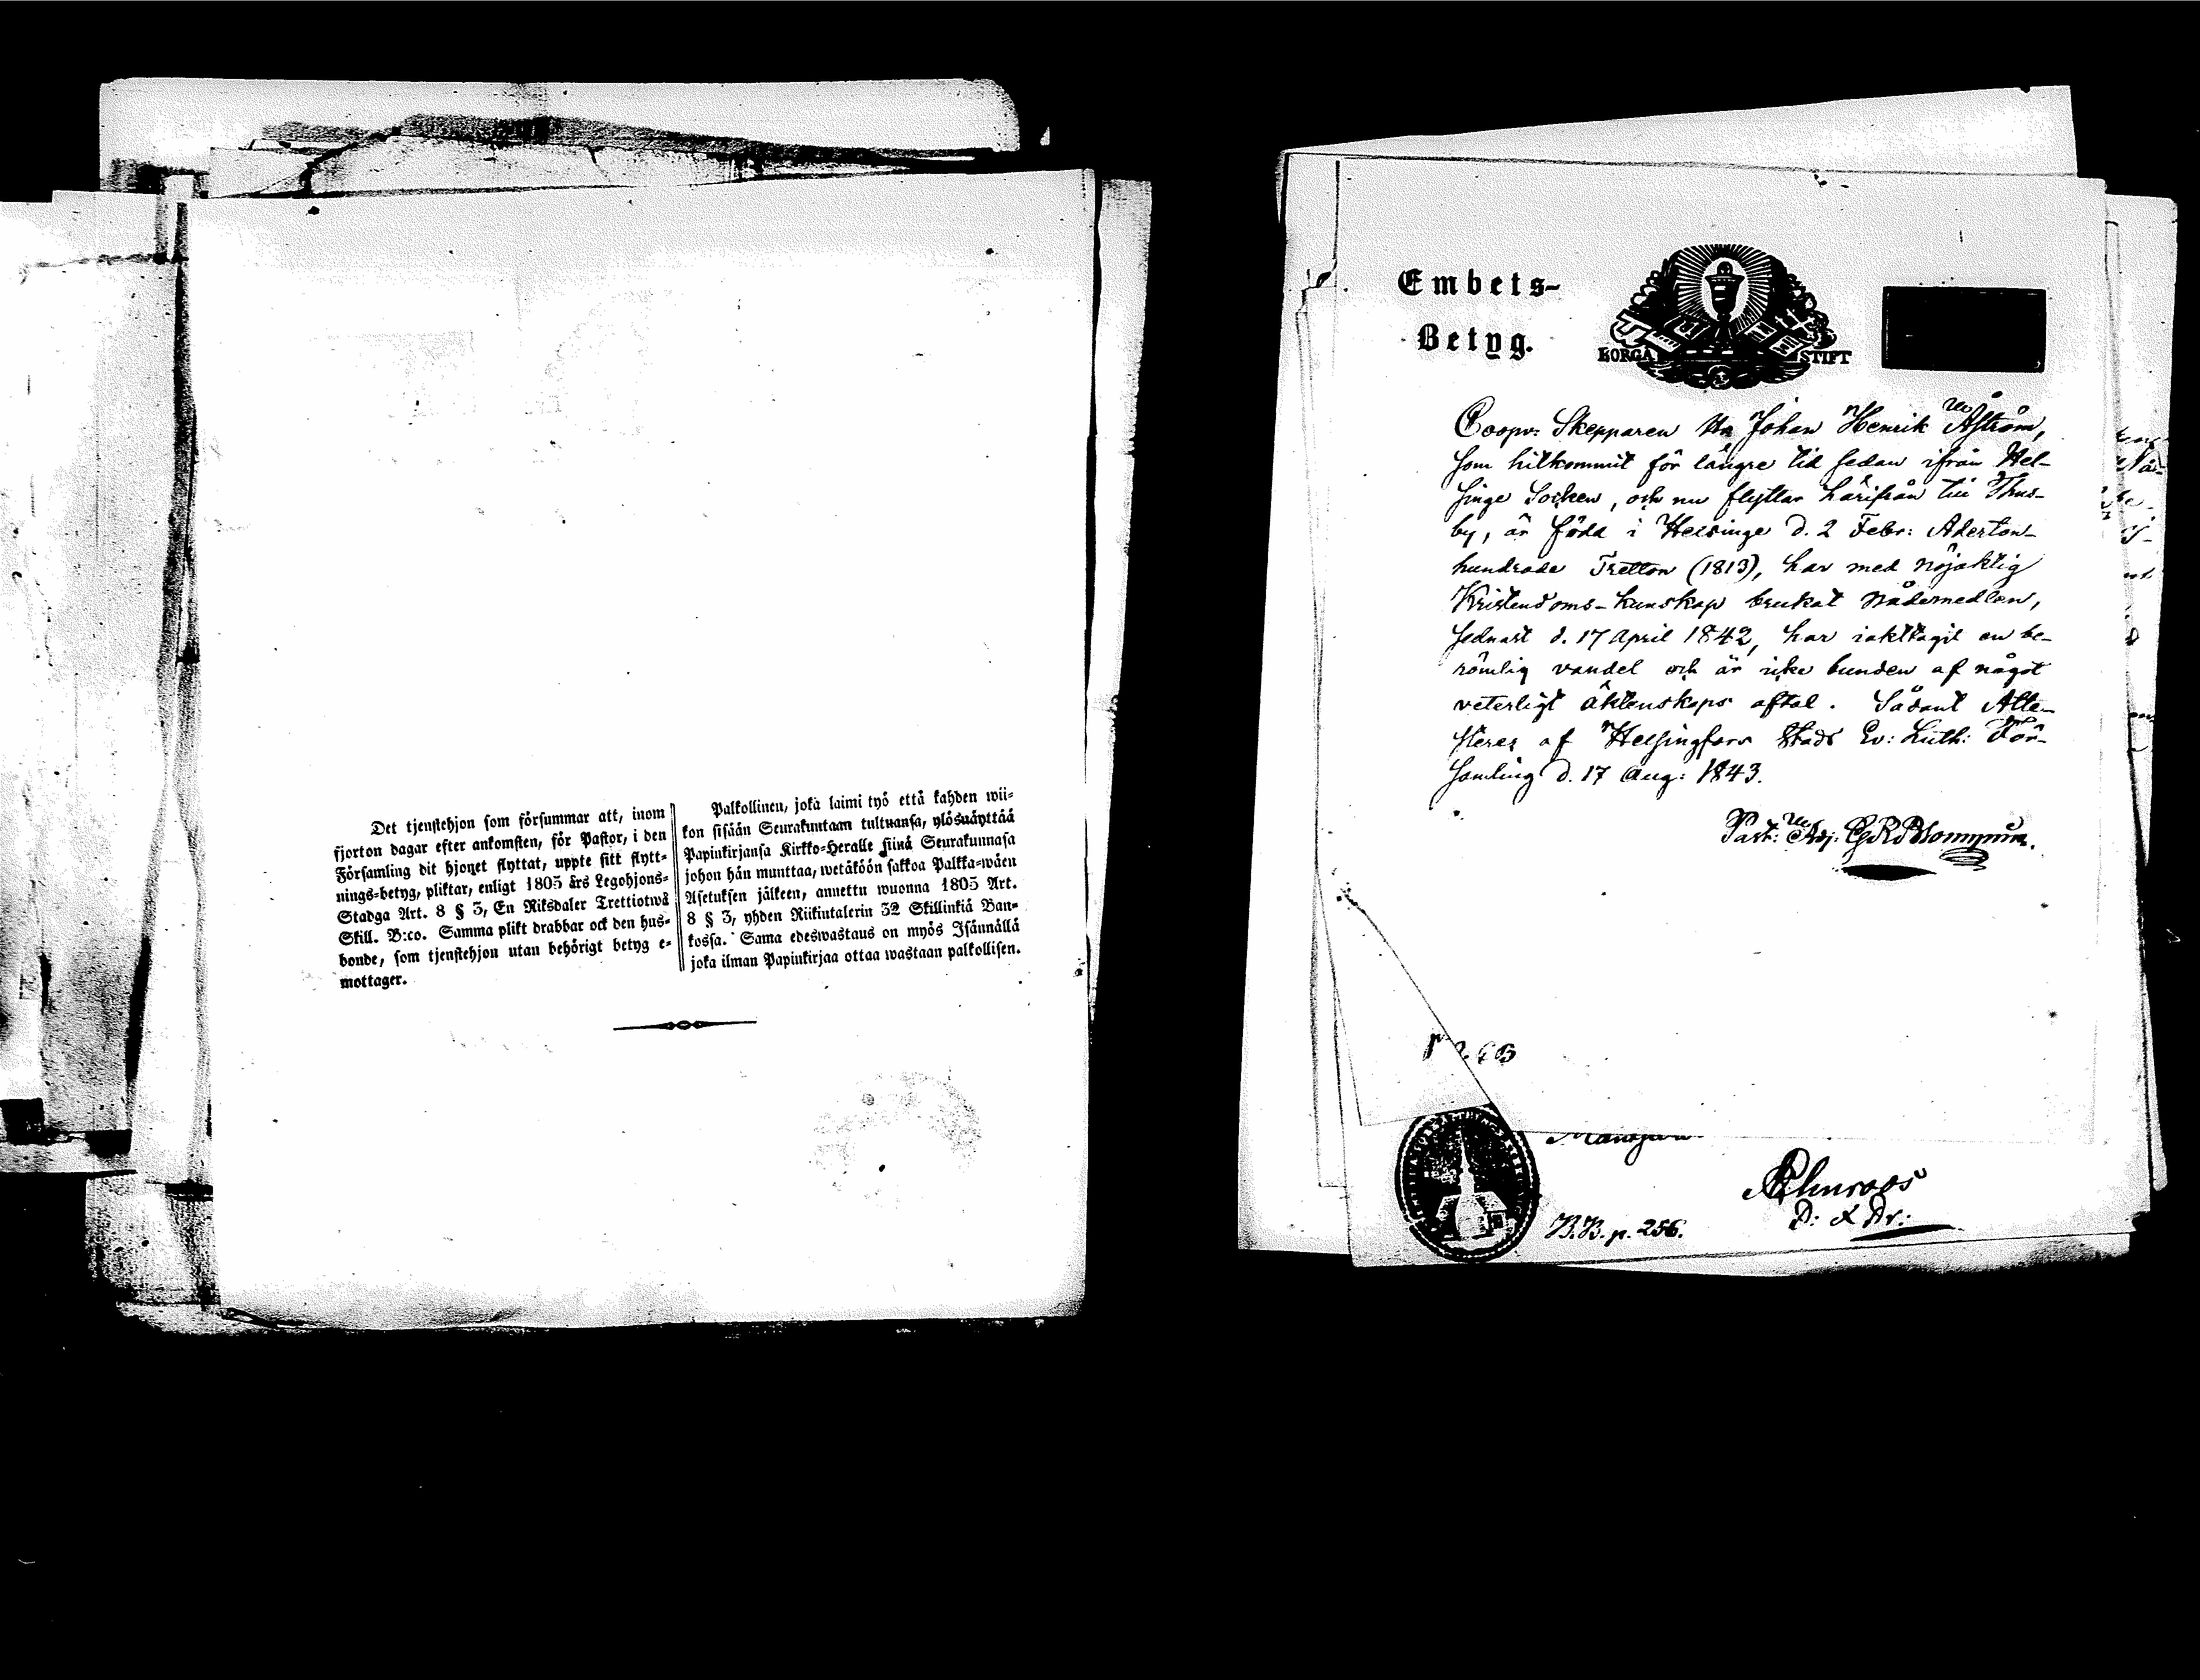 Det tjenstehjon som försummar att, inom
fjorton dagar efter ankomsten, för Pastor, i den
Församling dit hjonet flyttat, uppte sitt flytt-
nings-betyg, pliktar, enligt 1805 års Legohjons-
Stadga Art. 8 § 3, En Riksdaler Trettiotwå
Skill. B:co. Samma plikt drabbar ock den hus-
bonde, som tjenstehjon utan behörigt betyg e-
mottager.
Palkollinen, joka laimi työ että kahden wii-
kon sisään Seurakuntaan tultuansa, ylösnäyttää
Papinkirjansa Kirkko-Heralle siinä Seurakunnasa
johon hän munttaa, wetäköön sakkoa Palkka-wäen
Asetuksen jälkeen, annettu wuonna 1805 Art.
8 § 3, yhden Riikintalerin 32 Skillinkiä Ban-
kossa. Sama edeswastaus on myös Isännällä
joka ilman Papinkirjaa ottaa wastaan palkollisen.
Embets-
Betyg.
BORGÅ STIFT
Coopv: Skepparen Johan Henrik Åström,
som hitkommit för längre tid sedan ifrån Hel-
singe Socken, och nu flyttar härifrån till Thus-
by, är född i Helsinge d. 2 Febr: Aderton-
hundrade Tretton (1813), har med nöjaktig
Kristendoms-kunskap brukat Nådemedlen,
sednast d. 17 April 1842, har iakttagit en be-
römlig vandel och är icke bunden af något
veterligt äktenskaps aftal. Sådant Atte-
steres af Helsingfors Stads Ev: Luth: För-
samling d. 17 Aug: 1843.
Past: Adj.
B.B. p. 256.